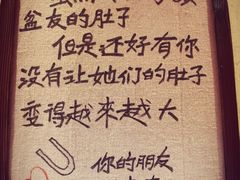 盆友的肚子
但是还好有你
没有让她们的肚子
变得越来越大
你的朋友